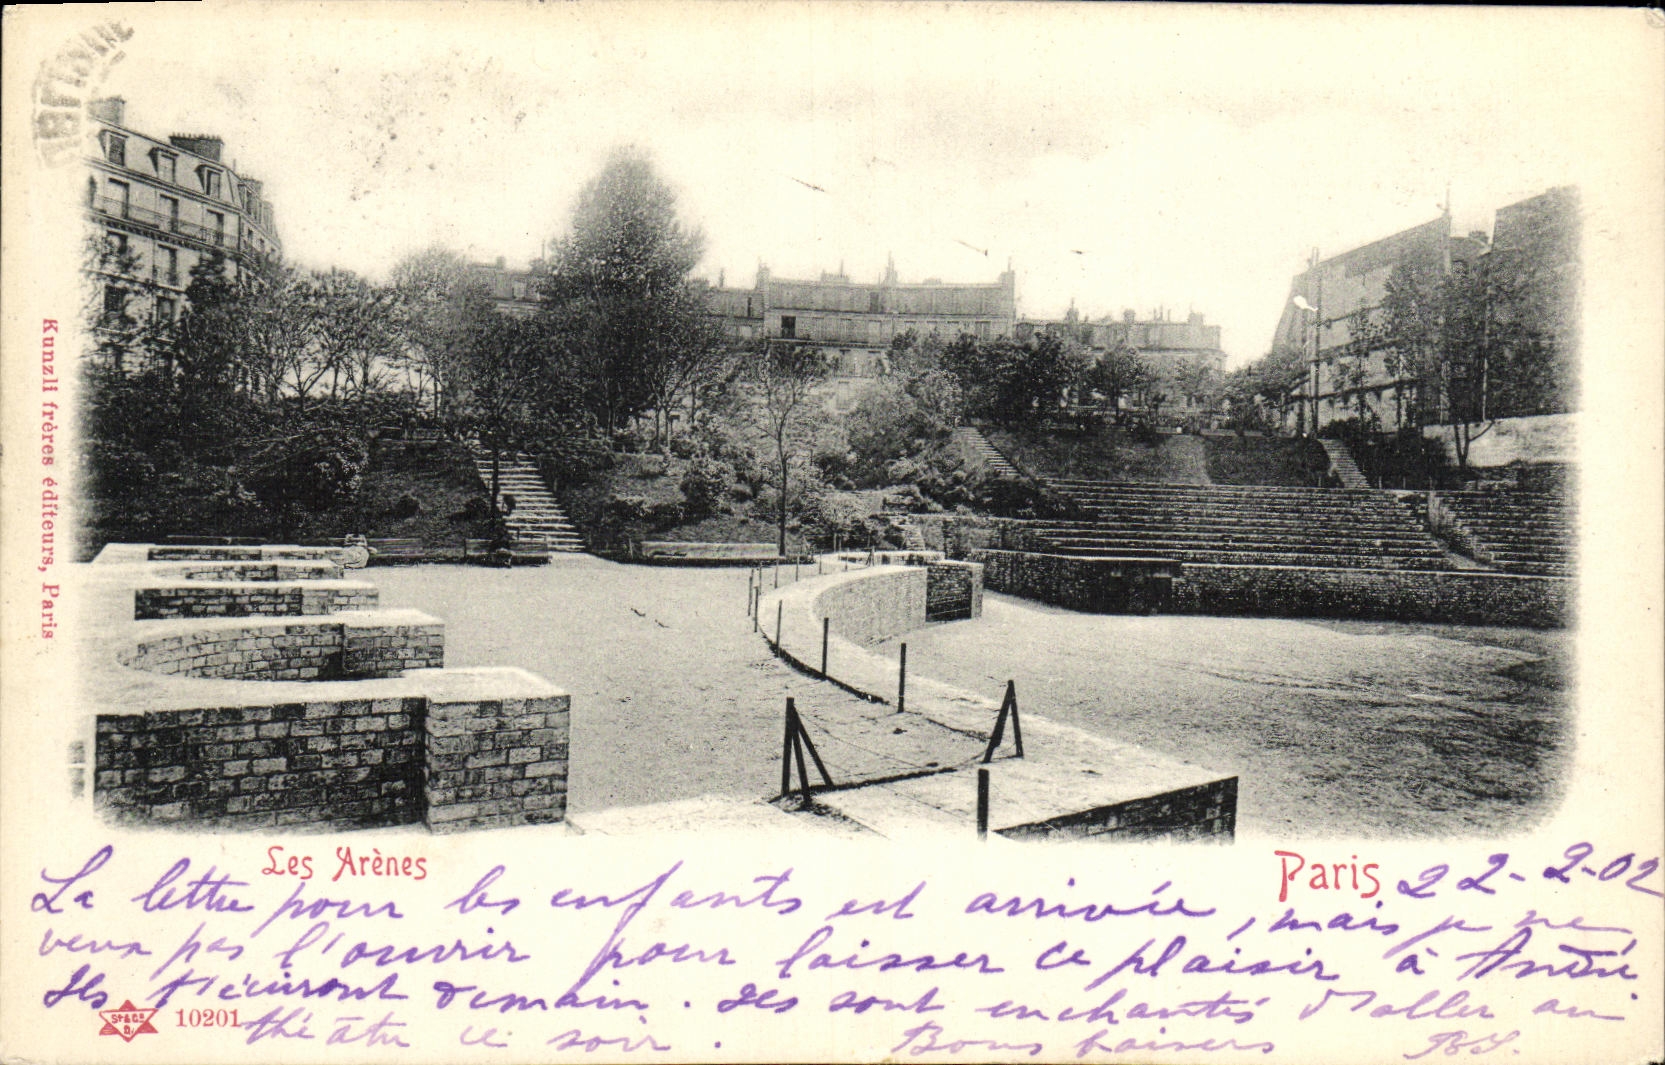 Kunzli frères éditeurs, Paris
Les Arènes
Paris 22-2-02
La lettre pour les enfants est arrivée, mais je ne
veux pas l'ouvrir pour laisser ce plaisir à André
Ils t'écriront demain. Ils sont enchantés d'aller au
théâtre ce soir. Bons baisers
St & Co
D.
10201